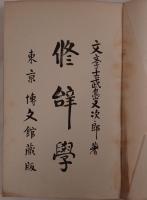 文学士武島又次郎著
修辭學
東京博文館藏版